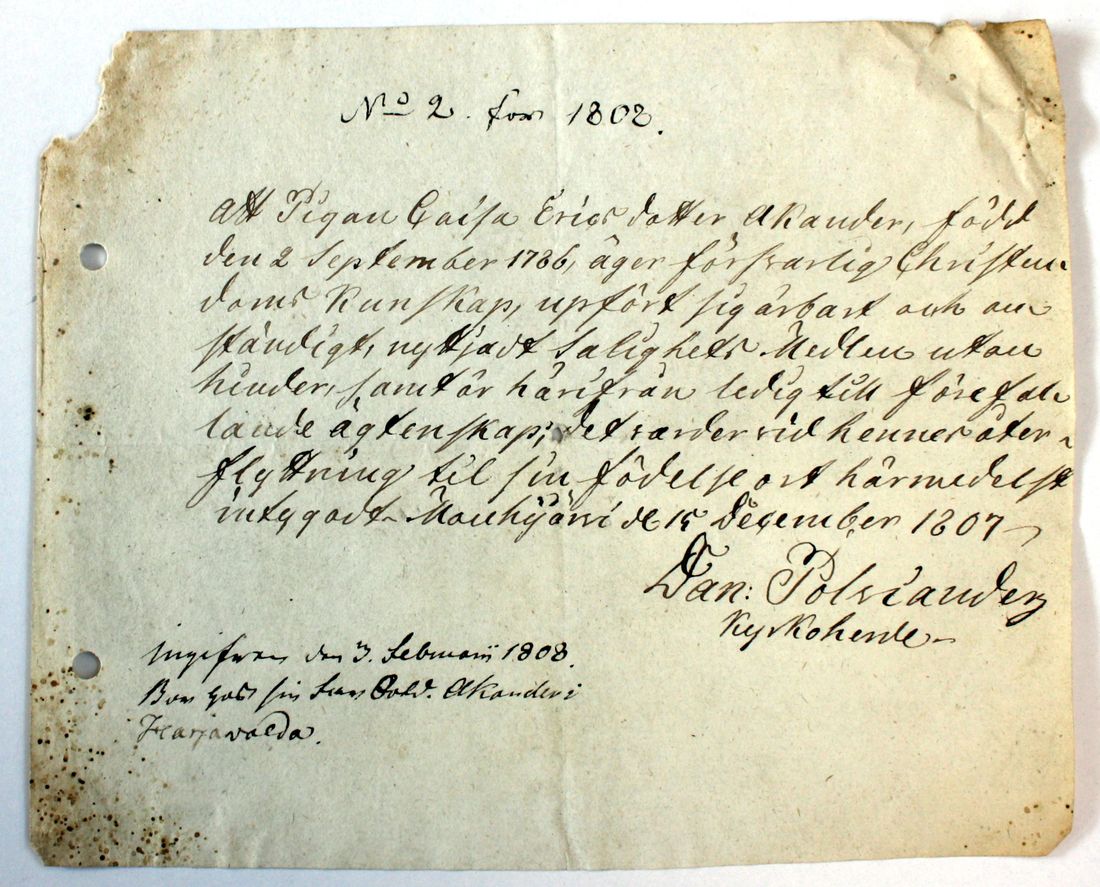 No 2. for 1808.
Att Pigan Caisa Ericsdotter Akander, född
den 2 September 1786, äger försvarlig Christen-
doms Kunskap, upfört sig ärbart och an
ständigt, nyttjadt Salighets Medlen utan
hinder, samt är härifrån ledig till förefal
lande ägtenskap; det varder vid hennes åter-
flyttning til sin födelse ort härmedelst
intygadt Mouhijärvi d 15 December 1807
Dan: Polviander
Kyrkoherde
Ingifven den 3. Februarii 1808.
Bor hos sin Sold. Akander i
Harjavalda.